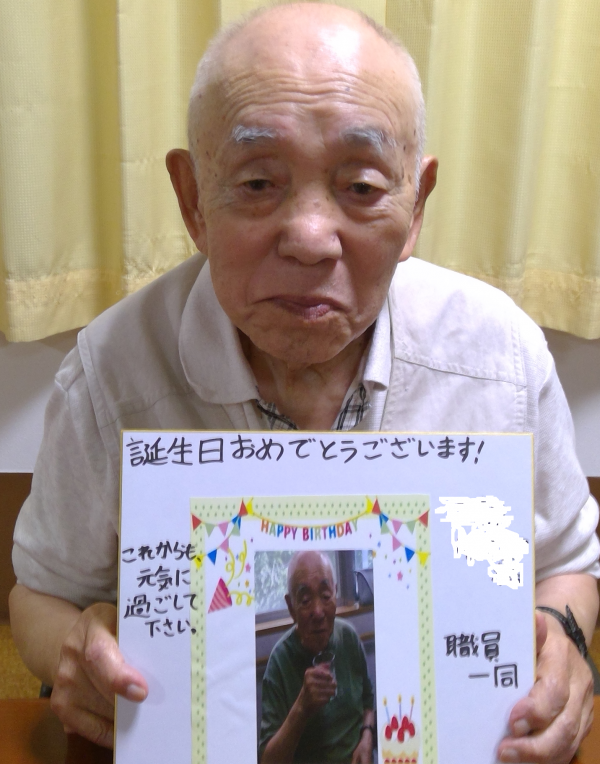 誕生日おめでとうございます!
HAPPY BIRTHDAY
これからも、
元気に
過ごして
下さい。
職員
一同